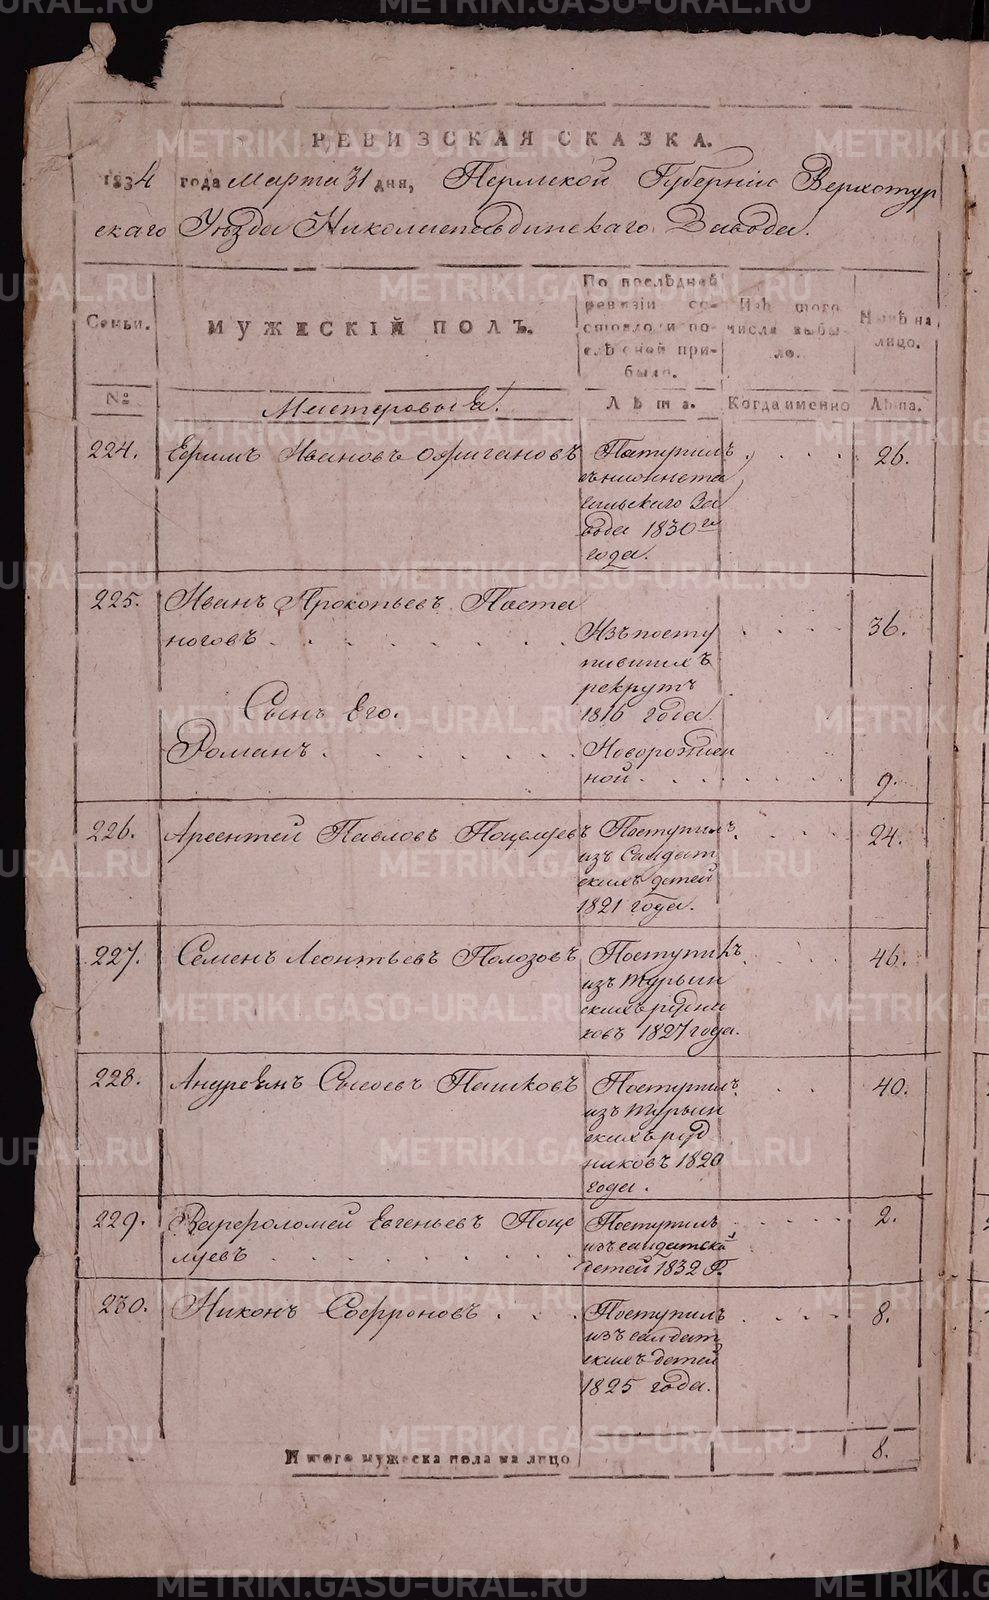 РЕВИЗСКАЯ СКАЗКА.
1834 года Марта 31 дня, Пермской Губерніи Верхотур
скаго Уѣзда Николаепавдинскаго Завода.
Семьи.
МУЖЕСКІЙ ПОЛЪ.
По послѣдней
ревизіи со-
стояло, и по-
слѣ оной при-
было.
Изъ того
числа выбы-
ло.
Нынѣ на
лицо.
№
Мастеровые.
Лѣта.
Когда именно
Лѣта.
224. Ефимъ Ивановъ
Поступилъ
За
вода 1830го
года.
26.
225. Иванъ Прокопьевъ Поста
ноговъ
Изъ посту
пившихъ
рекрутъ
1810 года.
36.
Сынъ Его.
Романъ
Новорожден
ной
9.
226. Арсентей Павловъ Поцелуевъ
Поступилъ
изъ Салдат
скихъ детей
1821 года.
24.
227. Семенъ Леонтьевъ Полозовъ
Поступилъ
изъ Турьин
скихъ рудни
ковъ 1827 года.
46.
228. Андреянъ Сысоевъ Пашковъ
Поступилъ
изъ Турьин
скихъ руд
никовъ 1820
года.
40.
229. Варфоломей Евгеньевъ Поце
луевъ
Поступилъ
изъ салдатски
детей 1832 Г.
2.
230. Никонъ Софроновъ
Поступилъ
изъ салдат
скихъ детей
1825 года.
8.
Итого мужеска пола на лицо
8.
METRIKI.GASO-URAL.RU